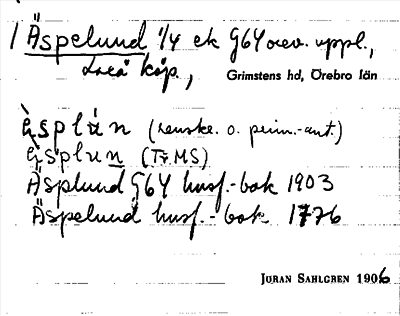 1 Äspelund 1/4 ek G64 orev. uppl.,
köp., Grimstens hd, Örebro län
ɛ̀splún (renskr. o. prim.-ant.)
ɛ̀splun (Tv. MS)
Äsplund G64 husf.-bok 1903
Äspelund husf.-bok 1776
JÖRAN SAHLGREN 1906